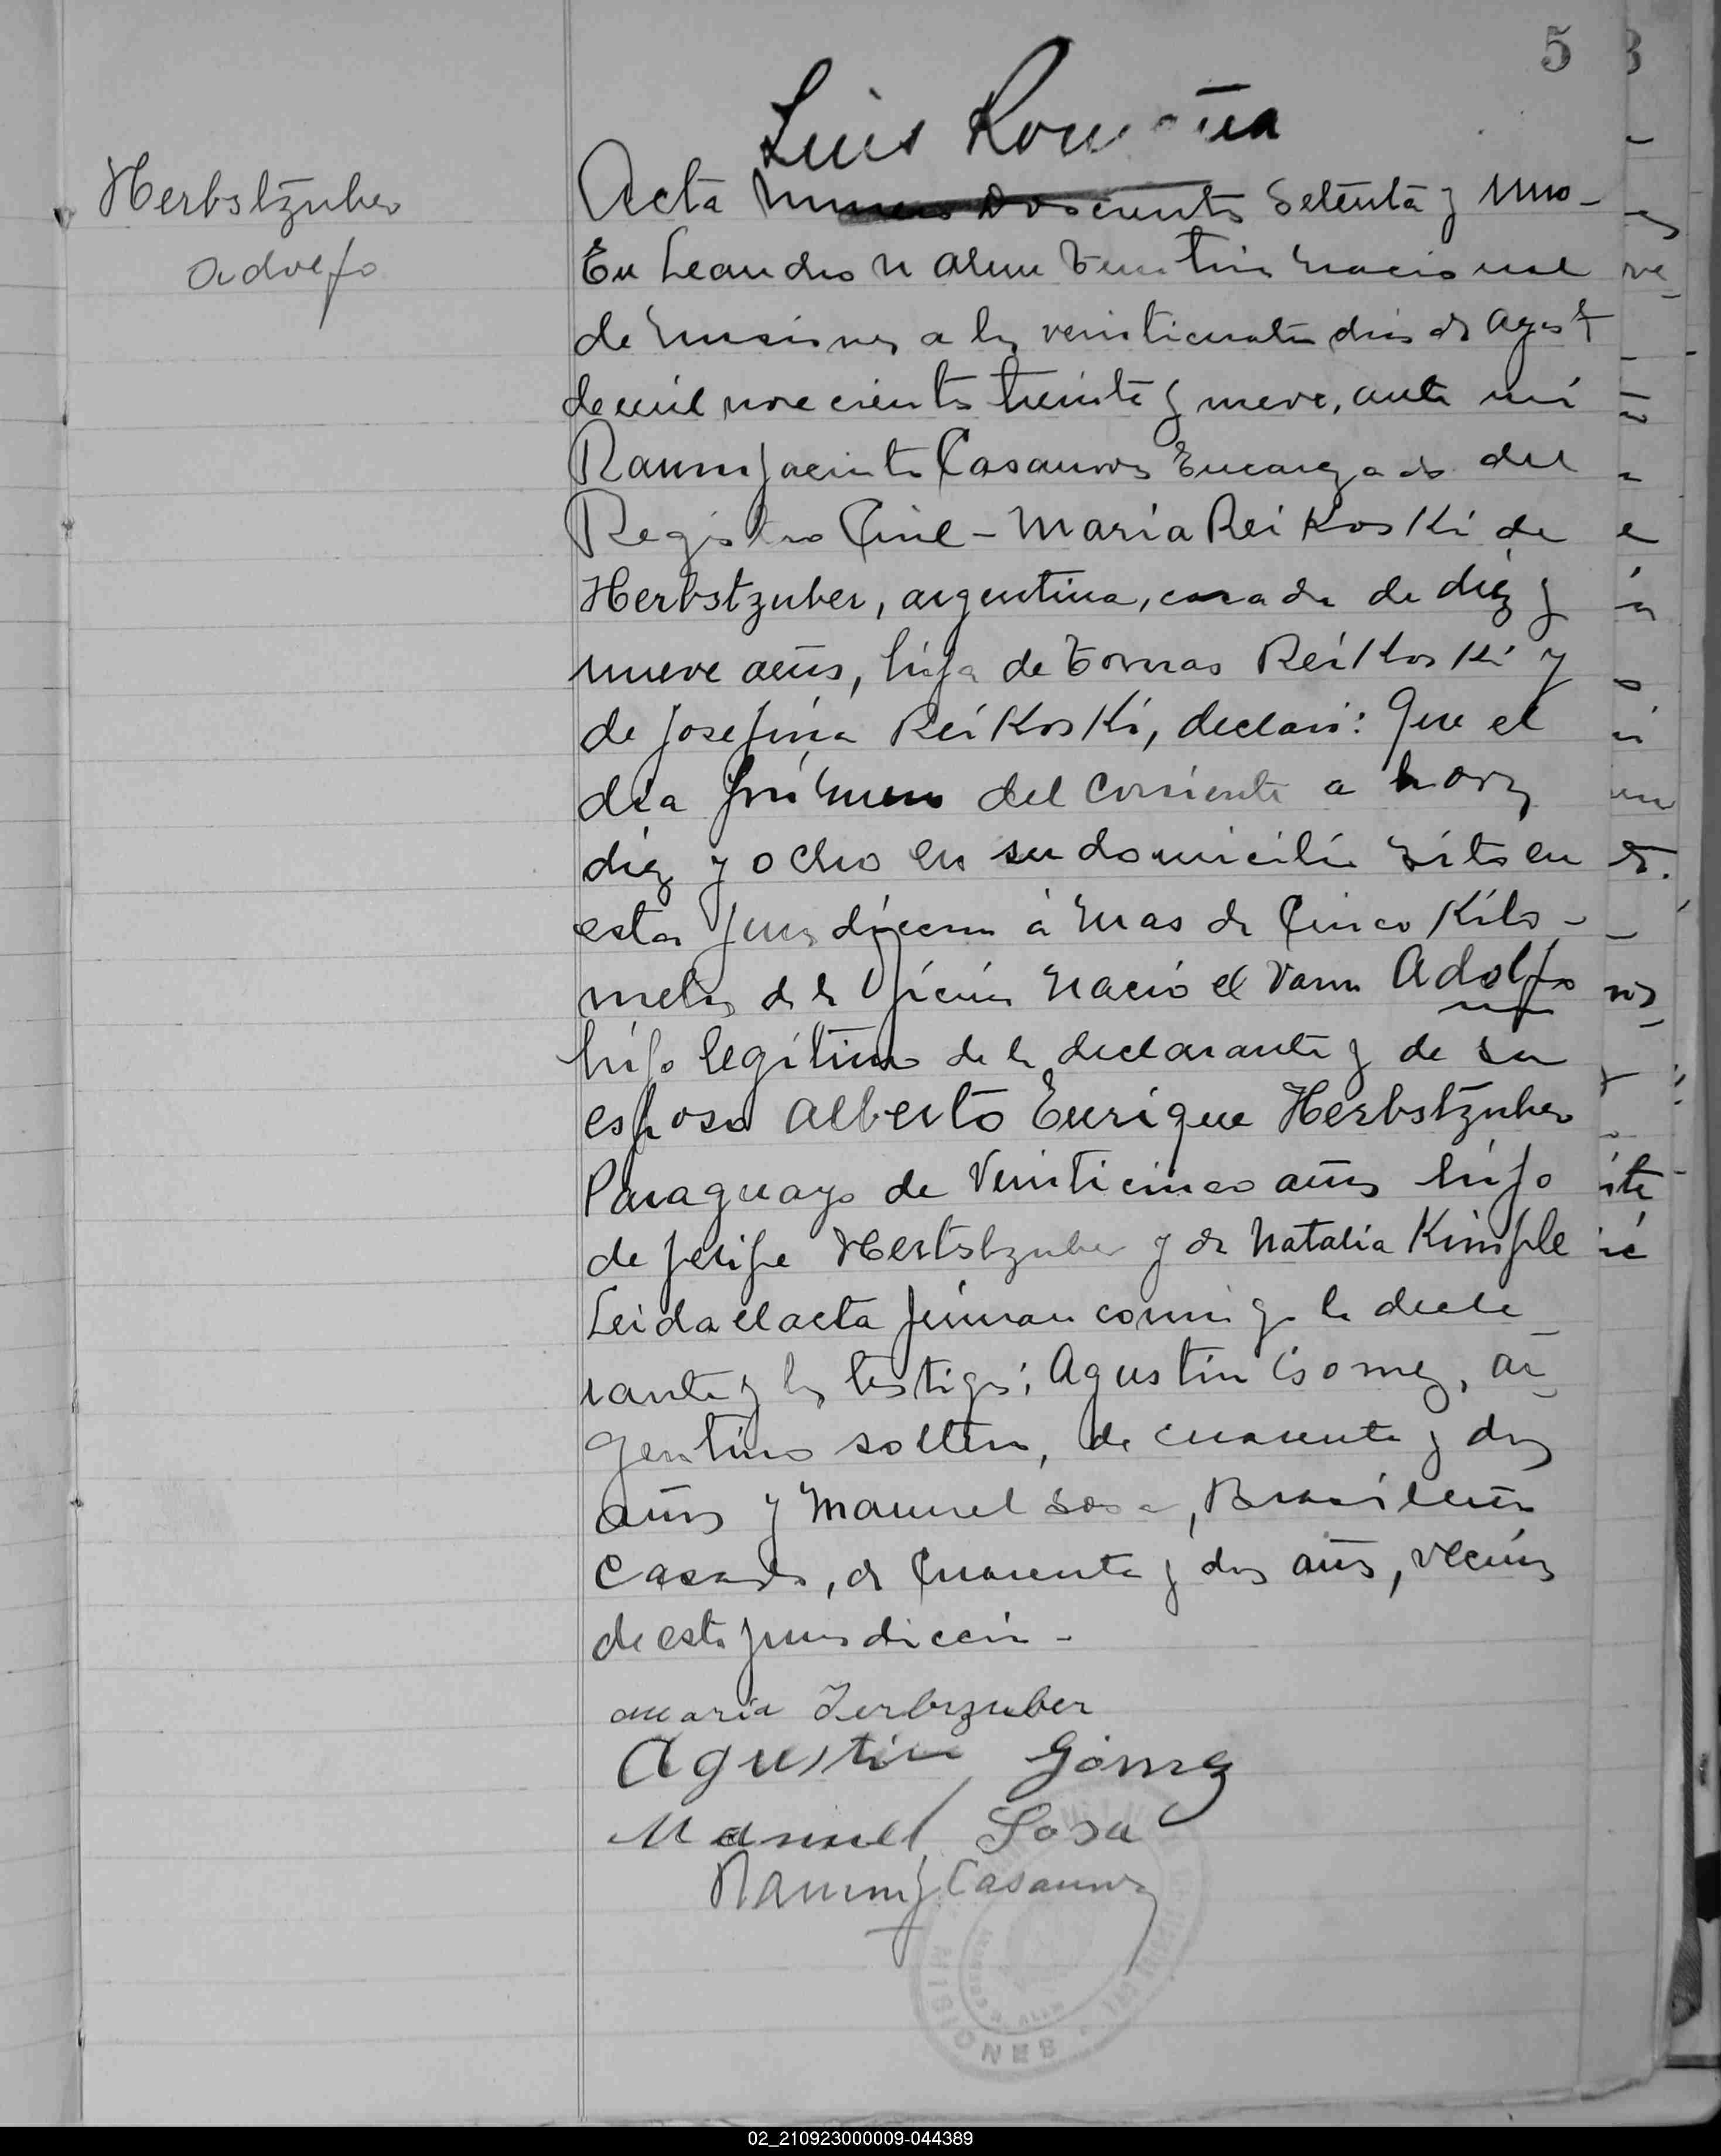 5
Luis
Herbstzuber
Adolfo
Acta Numero Doscientos Setenta y Uno-
En Leandro N Alem Territorio Nacional
de Misiones a los veinticuatro dias de Agosto
de mil novecientos treinta y nueve, ante mi
Ramon Jacinto Casanova Encargado del
Registro Civil - Maria Reikoski de
Herbstzuber, argentina, casada de diez y
nueve años, hija de Tomas Reikoski y
de Josefina Reikoski, declaró: Que el
dia primero del corriente a horas
diez y ocho en su domicilio sito en
esta jurisdiccion á mas de Cinco Kilo-
metros de la Oficina Nació el varon Adolfo
hijo legítimo de la declarante y de su
esposo Alberto Enrique Herbstzuber
Paraguayo de Veinticinco años hijo
de Felipe Herbstzuber y de Natalia Kimple
Leida el acta firman conmigo la decla-
rante y los testigos: Agustin Gomez, ar-
gentino soltero, de cuarenta y dos
años y Manuel Sosa, Brasileño
Casado, de Cuarenta y dos años, vecinos
de esta jurisdiccion -
Maria Zerbrzuber
Agustin Gómez
Manuel Sosa
Ramon J. Casanova
MISIONES
02_210923000009-044389